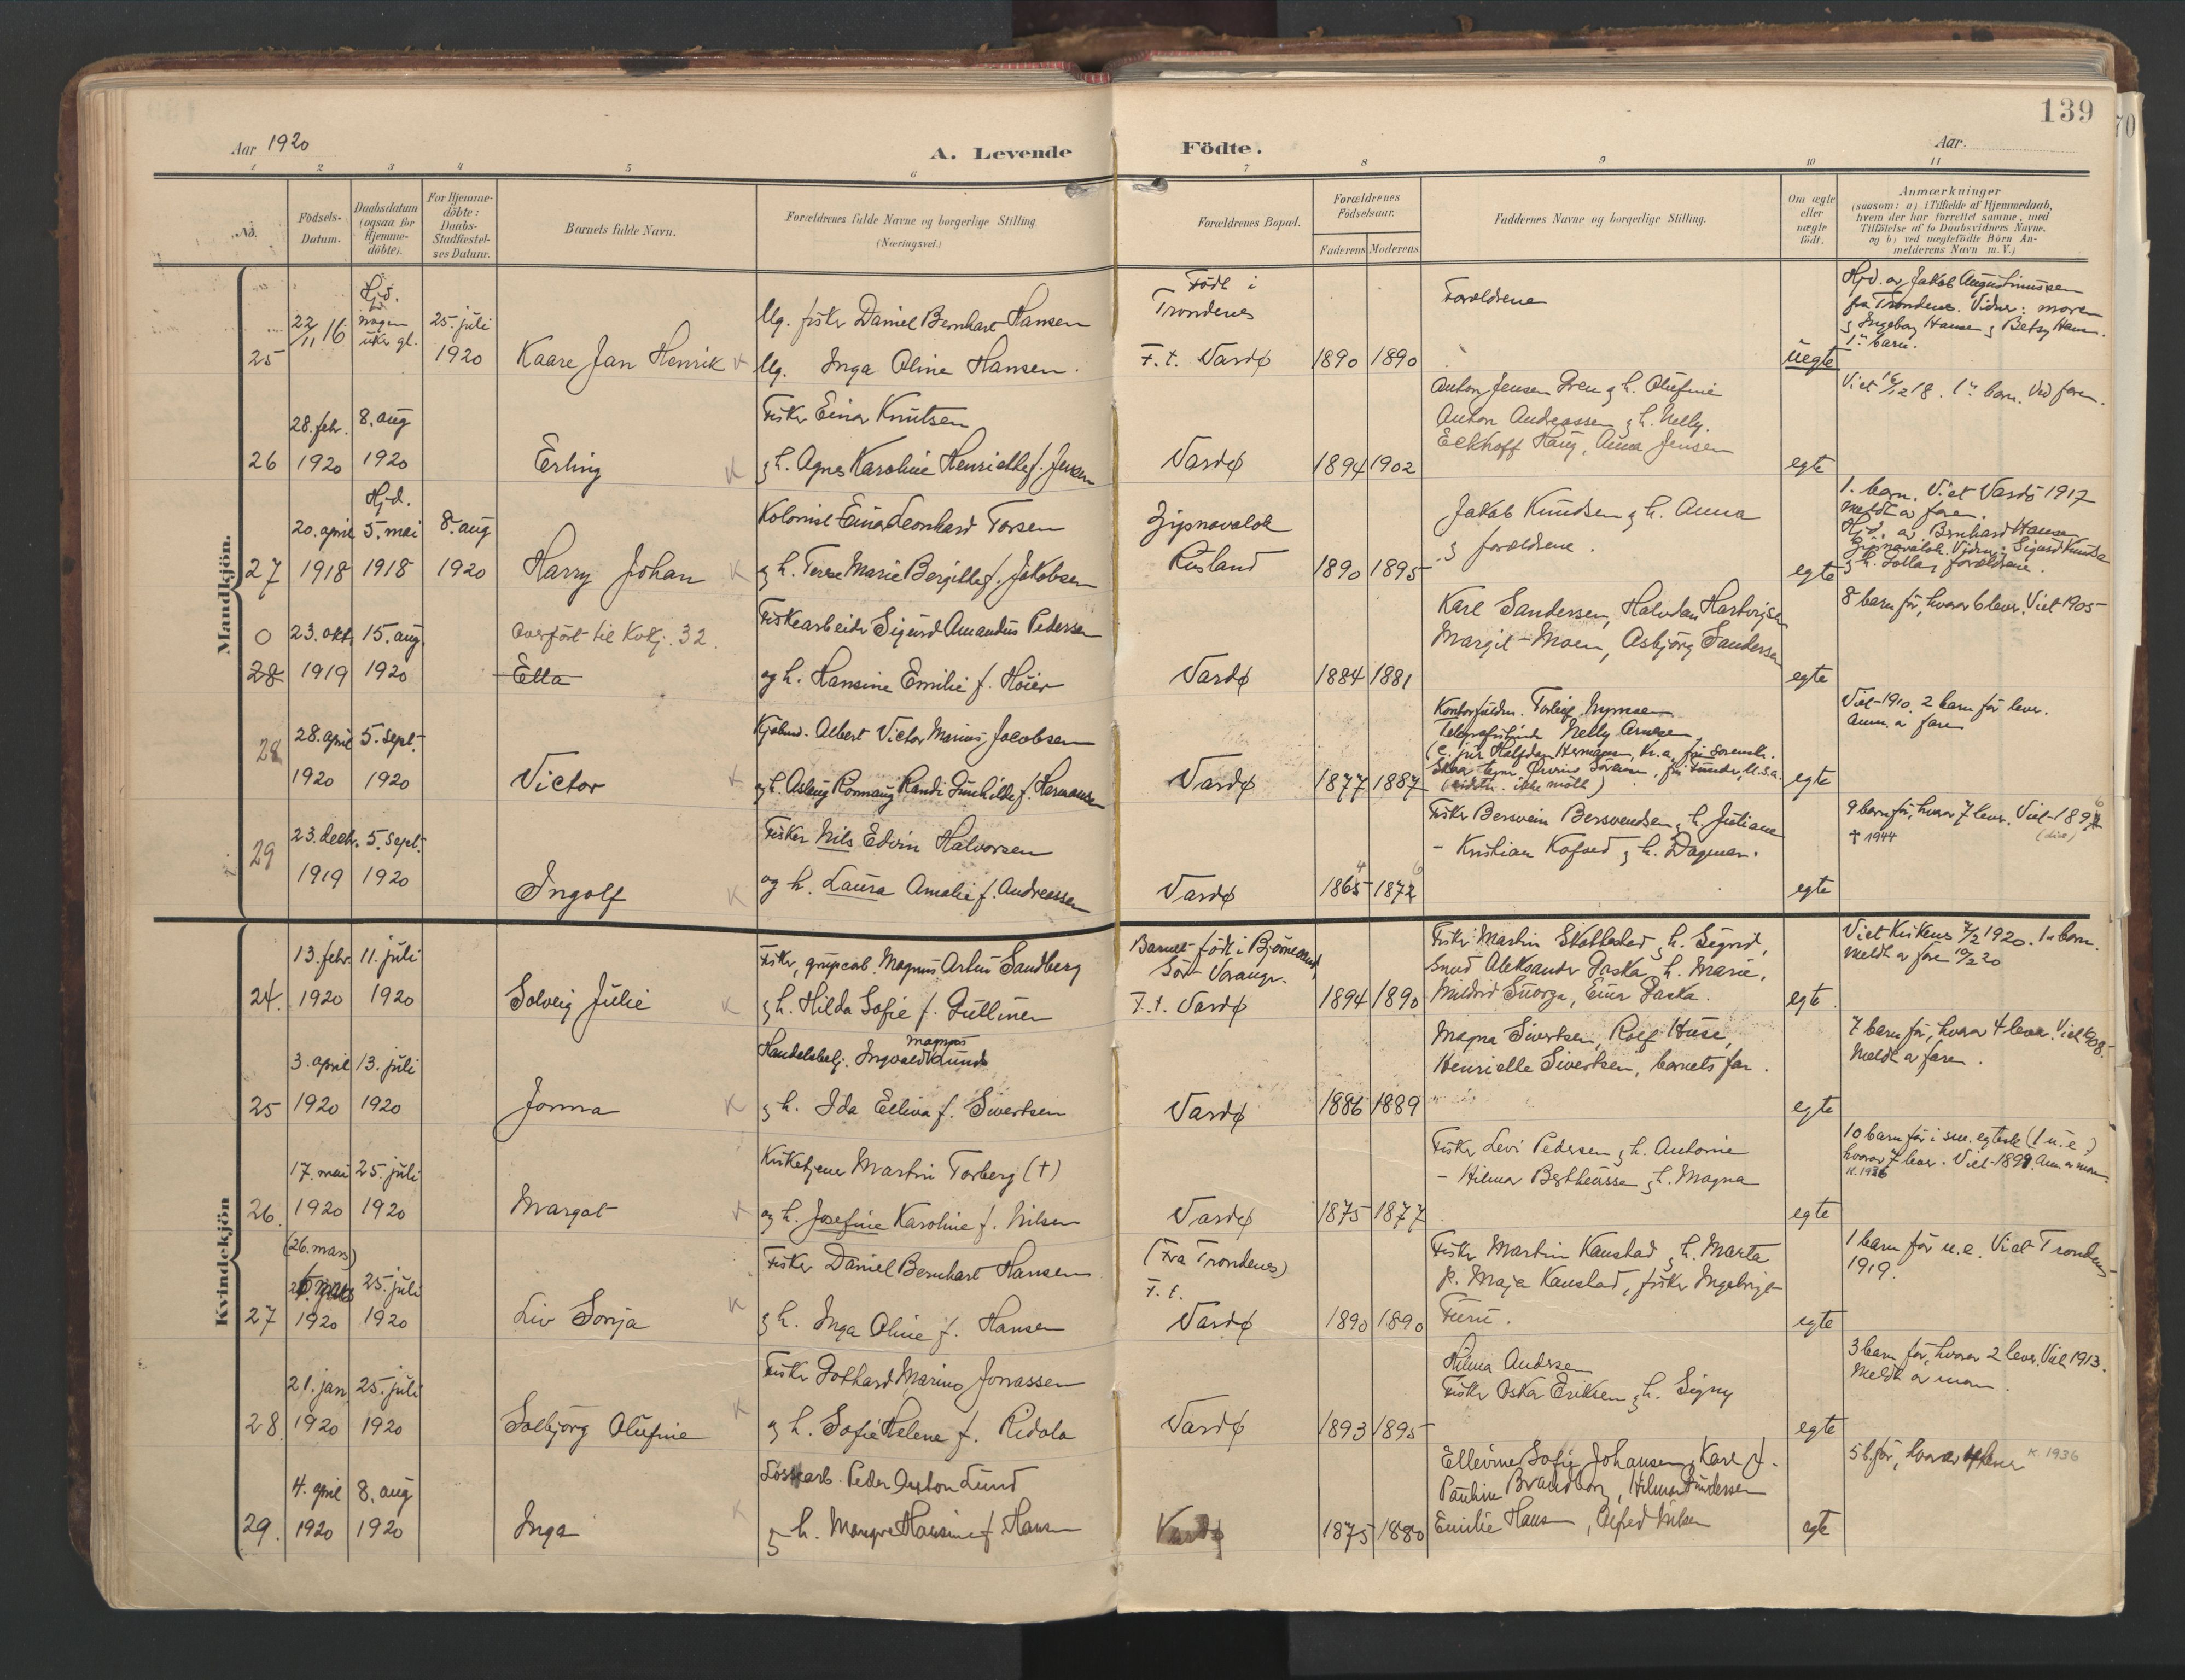 139
Aar 1920
A. Levende Födte.
Aar.
1 2 3 4 5 6 7 8 9 10 11
No.
Födsels-Datum.
Daabsdatum (ogsaa for Hjemme-döbte).
For Hjemme-döbte: Daabs-Stadfæstel-ses Datum.
Barnets fulde Navn.
Forældrenes fulde Navne og borgerlige Stilling
(Næringsvei.)
Forældrenes Bopæl.
Forældrenes Födselsaar.
Faderens Moderens
Faddernes Navne og borgerlige Stilling.
Om ægte eller uægte födt.
Anmærkninger
(saasom: a) i Tilfælde af Hjemmedaab,
hvem der har forrettet samme, med
Tilföielse af to Daabsvidners Navne.
og b) ved uægtefödte Börn An-
melderens Navn m. V.)
Mandkjön.
25
22/11 16
Hjd.
nogen
uker gl.
25. juli
1920
Kaare Jan Henrik
Ug. fisker Daniel Bernhart Hansen
Ug. Inga Oline Hansen.
Född i
Trondenes
F. t. Vardø
1890 1890
Forældrene
uegte
Hjd. av Jakob Augustinussen
fra Trondenes. Vidner: moren
g Ingeborg Hansen g Betsy Hans.
1. barn.
26
28. febr.
1920
8. aug
1920
Erling
Fisker Einar Knutsen
g h. Agnes Karoline Henriette f. Jensen
Vardø
1894 1902
Anton Jensen Gren g h. Olufine
Anton Andreassen g h. Nelly.
Eckhoff Haug, Anna Jensen
egte
Viet 16/12 18. 1. barn. Ved faren.
27
20. april
1918
Hjd.
5. mai
1918
8. aug
1920
Harry Johan
Kolonist Einar Leonhard Torsen
g h. Terese Marie Bergitte f. Jakobsen
Zipnavolok
Rusland
1890 1895
Jakob Knudsen g h. Anna
g forældrene.
egte
1. barn. Viet Vardö 1917
Meldt av faren.
Hjd. av Bernhard Hansen
Zipnavolok. Vidner: Sigurd Knudsen
g h. Lolla, forældrene.
0
28
23. okt.
1919
15. aug.
1920
Overfört til Kvkj. 32.
Ella
Fiskearbeider Sigurd Amandus Pedersen
og h. Hansine Emilie f. Höier
Vardø
1884 1881
Karl Sandersen, Halvdan Hartvigsen
Margit Moen, Asbjörg Sandersen
egte
8 barn för, hvorav 6 lever. Viet 1905
28
28. april
1920
5. sept.
1920
Victor
Kjöbmd. Albert Victor Marius Jacobsen
g h. Aslaug Ronnaug Randi Gunhilde f. Hermansen
Vardø
1877 1887
Kontorfuldm. Torleif
Nelly Arnesen
(C. jur Halfdan Hermansen, Kr.a, fru Sorensk.
(sidstn. ikke mött)
egte
Viet 1910. 2 barn för lever.
Anm. av faren
29
23. decbr.
1919
5. sept.
1920
Ingolf
Fisker Nils Edvin Halvorsen
og h. Laura Amalie f. Andreassen
Vardø
1865 1872
4 6
Fisker Bersvein Bersvendsen g h. Juliane
- Kristian Kofoed g h. Dagmar.
egte
9 barn för, hvorav 7 lever. Viet 189
† 1944
Kvindekjön
24.
13. febr.
1920
11. juli
1920
Solveig Julie
Fisker, grubearb. Magnus Artur Sandberg
g h. Hilda Sofie f. Gullinen
Barnet född i Björnevand,
Sör-Varanger.
F. t. Vardø
1894 1890
Fisker Martin Skattestad g h. Sigrid,
Smed Aleksander Paska g h. Marie,
Mildrid Snorga, Einar Paska.
egte.
Viet Kirkenes 7/2 1920. 1 barn.
Meldt av faren 10/2 20
25
3. april
1920
13. juli
1920
Jorma
Handelsbetj. Ingvald Magnus Lund
g h. Ida Elliva f. Sivertsen
Vardø
1886 1889
Magna Sivertsen, Rolf Huse,
Henriette Sivertsen, barnets far.
egte
7 barn för, hvorav 4 lever. Viet 1908.
Meldt av faren.
26.
17. mai
1920
25. juli
1920
Margot
Kirketjener Martin Torberg (†)
og h. Josefine Karoline f. Nilsen
Vardø
1875 1877
Fisker Levi Pedersen g h. Antonie
- Hilmar Bertheussen g h. Magna
egte
10 barn för i sm. egtesk. (1 u.e)
hvorav 7 lever. Viet 1899. Anm. av mor.
K. 1936
27
(26. mars)
1920
25. juli
1920
Liv Sonja
Fisker Daniel Bernhart Hansen
g h. Inga Oline f. Hansen
(Fra Trondenes)
F. t.
Vardø
1890 1890
Fisker Martin Kaustad g h. Marta
p. Maja Kaustad, fisker Ingebrigt
Furu.
egte
1 barn för u.e. Viet Trondenes
1919.
28.
21. jan
1920
25. juli
1920
Solbjörg Olufine
Fisker Gothard Marino Jonassen
g h. Sofie Helene f. Ridola
Vardø
1893 1895
Hilma Andersen
Fisker Oskar Eriksen g h. Signy
egte
3 barn för, hvorav 2 lever. Viet 1913.
Meldt av mor.
29.
4. april
1920
8. aug
1920
Inga
Lossearb. Peder Anton Lund
g h. Margrete Hansine f. Hansen
Vardø
1875 1880
Ellevine Sofie Johansen, Karl J.
Pauline Brandborg, Hilmar Gundersen
Emilie Hansen, Alfred Nilsen
egte
5 b. för, hvorav 4 lever K 1936